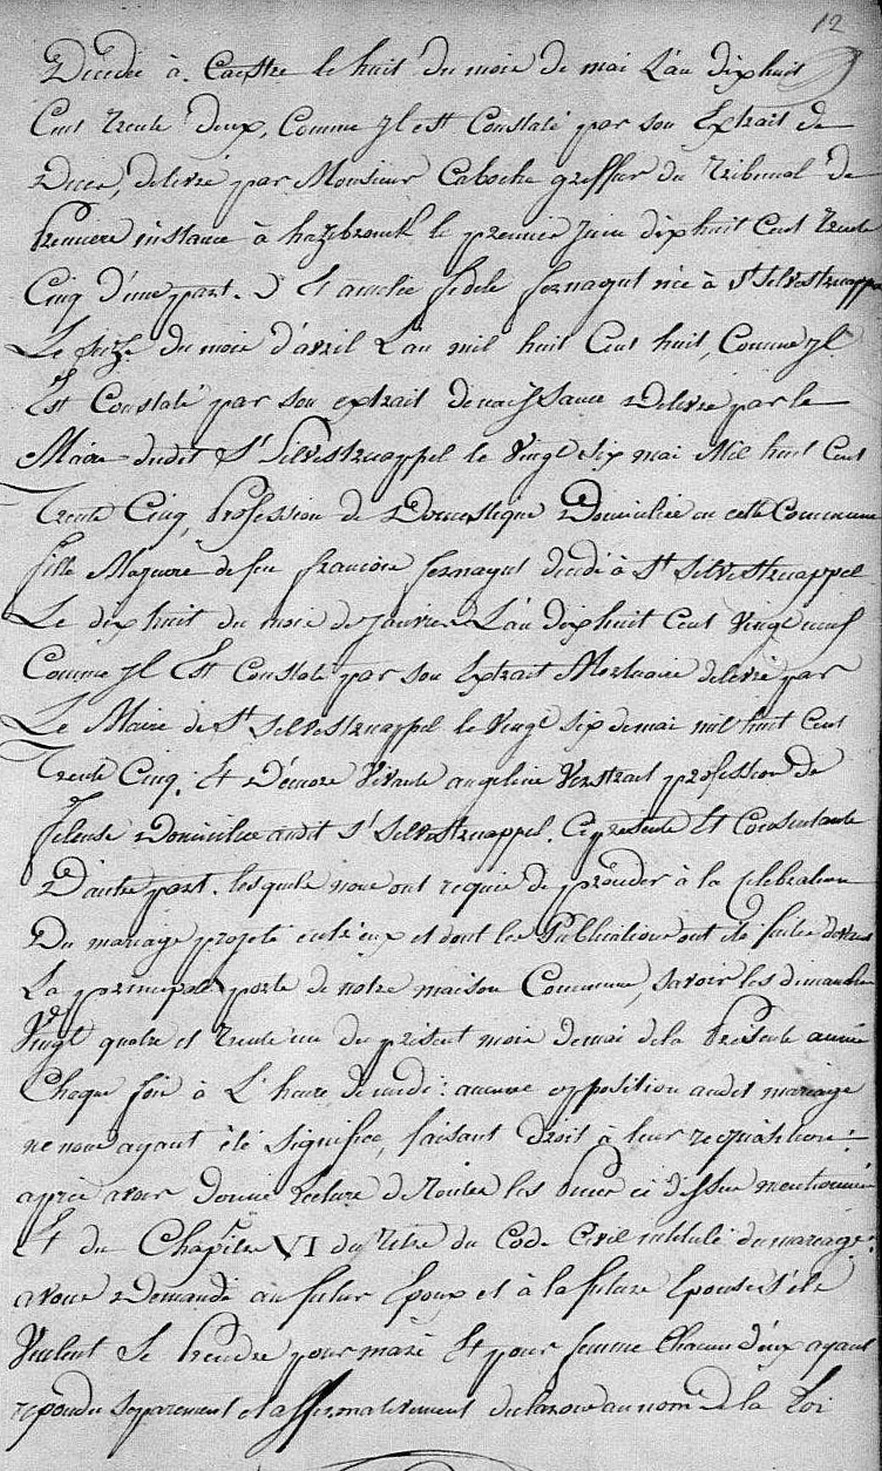 12
Décédée à Caestre le huit du mois de mai L'an dixhuit
Cent trente deux, Comme yl est Constaté par son Extrait de
Décès, délivré par Monsieur Caboche greffier du Tribunal de
Premiere instance à hazebrouck le premier Juin dixhuit Cent trente
Cinq d'une part. Et amelie fidele fernagut née à St Silvestrecappel
Le seize du mois d'avril L'an mil huit Cent huit, Comme yl
Est Constaté par son extrait de naissance Délivré par le
Maire dudit St Silvestrecappel le vingt six mai Mil huit Cent
Trente Cinq, Profession de Domestique Domiciliée en cette Commune
fille Majeure de feu francois fernagut décédé à St Silvestrecappel
Le dix huit du mois de janvier L'an dixhuit Cent vingt neuf
Comme yl Est Constaté par son Extrait Mortuaire délivré par
Le Maire de St Silvestrecappel le vingt six de mai mil huit Cent
Trente Cinq. Et D'encore vivante angeline Verstraet profession de
fileuse Domiciliée audit St Silvestrecappel. Ci présente Et Consentante
D'autre part. lesquels nous ont requis de procéder à la célébration
Du mariage projeté entr'eux et dont les Publications ont été faites devant
La principale porte de notre maison Commune, savoir les dimanches
Vingt quatre et trente un du présent mois de mai de la Présente année
Chaque fois à L'heure de midi: aucune opposition audit mariage
ne nous ayant été signifiée, faisant Droit à leur réquisition:
après avoir Donné Lecture de Toutes les Pieces ci dessus mentionnées
Et du Chapitre VI du Titre du Code Civil intitulé du mariage:
avons Demandé au futur Epoux et à la future Epouse s'ils
Veulent Se Prendre pour mari Et pour femme Chacun d'eux ayant
répondu séparement et affirmativement déclarons au nom de la Loi